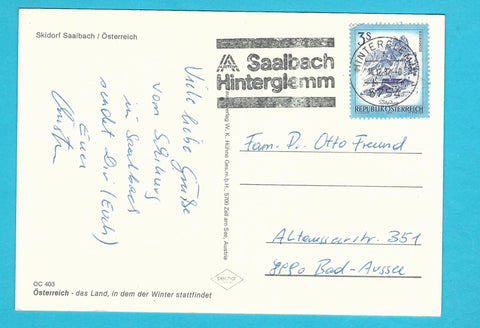 Skidorf Saalbach / Österreich
Viele liebe Grüße
vom Skikurs
in Saalbach
sendet Dir (Euch)
Euer
Saalbach
Hinterglemm
3 S
REPUBLIK ÖSTERREICH
Verlag W. K. Hühne Ges.m.b.H., 5700 Zell am See, Austria
Fam. D. Otto Freund
Altausseerstr. 351
8990 Bad-Aussee
OC 403
Österreich - das Land, in dem der Winter stattfindet